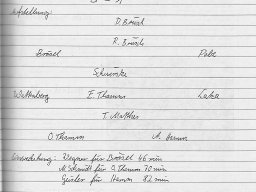 Aufstellung:
D. Brösel
R. Brösel
Brösel Pabe
Schwärske
Wittenberg E. Thamm Laka
T. Mathes
O. Thamm A. Hamm
Auswechslung: Wegner für Brösel 46 min
M. Schmidt für O. Thamm 70 min
für Hamm 82 min